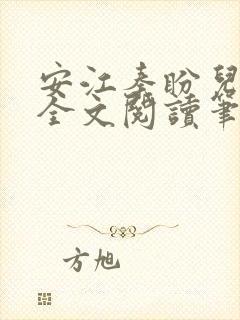 安江秦盼兒
全文閱讀筆
方旭